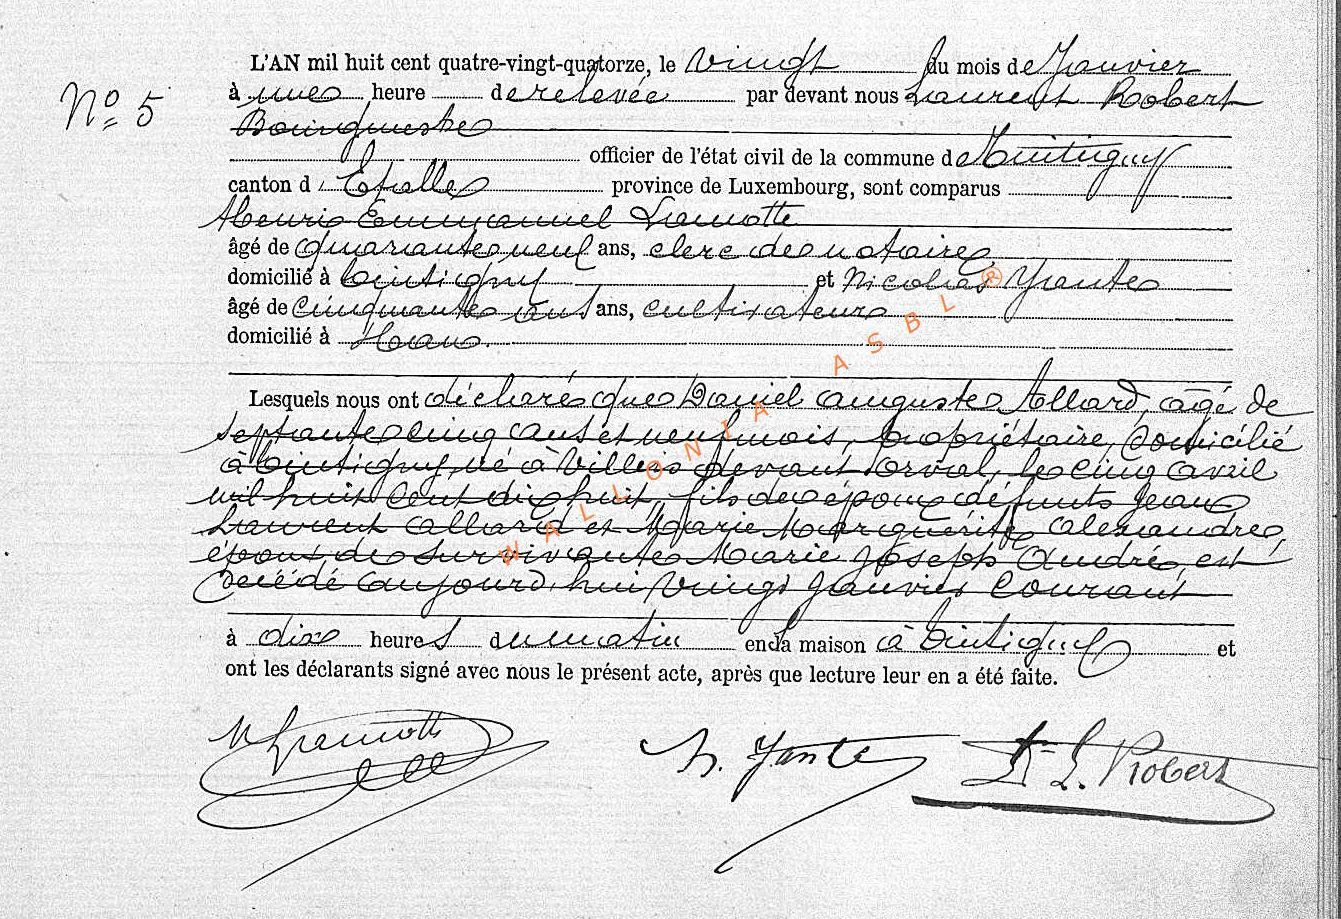 L'AN mil huit cent quatre-vingt-quatorze, le vingt du mois de Janvier
N° 5
à une heure de relevée par devant nous Laurent Robert
Bourgmestre
officier de l'état civil de la commune de Tintigny
canton d'Etalle province de Luxembourg, sont comparus
Henri Emmanuel Lamotte
âgé de quarante neuf ans, clerc de notaire
domicilié à Tintigny et Nicolas Yante
âgé de cinquante ans, cultivateur
domicilié à Han.
Lesquels nous ont déclaré que Daniel auguste Allard, âgé de
septante cinq ans et neuf mois, propriétaire, domicilié
à Tintigny, né à Villers devant Orval, le cinq avril
mil huit cent dix huit, fils des époux défunts Jean
Laurent allard et Marie Marguerite alexandre,
époux de survivante Marie Joseph André, est
décédé aujourd'hui vingt Janvier courant
à dix heures du matin en sa maison à Tintigny et
ont les déclarants signé avec nous le présent acte, après que lecture leur en a été faite.
Lamotte N. Yante L. Robert
WALLONIA ASBL ®